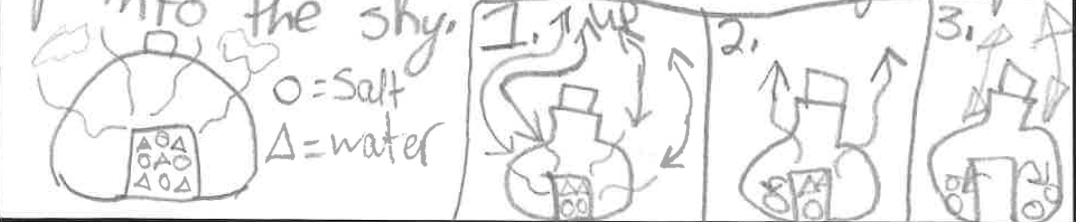 into the sky.
O = Salt
Δ = water
1. up
2.
3.